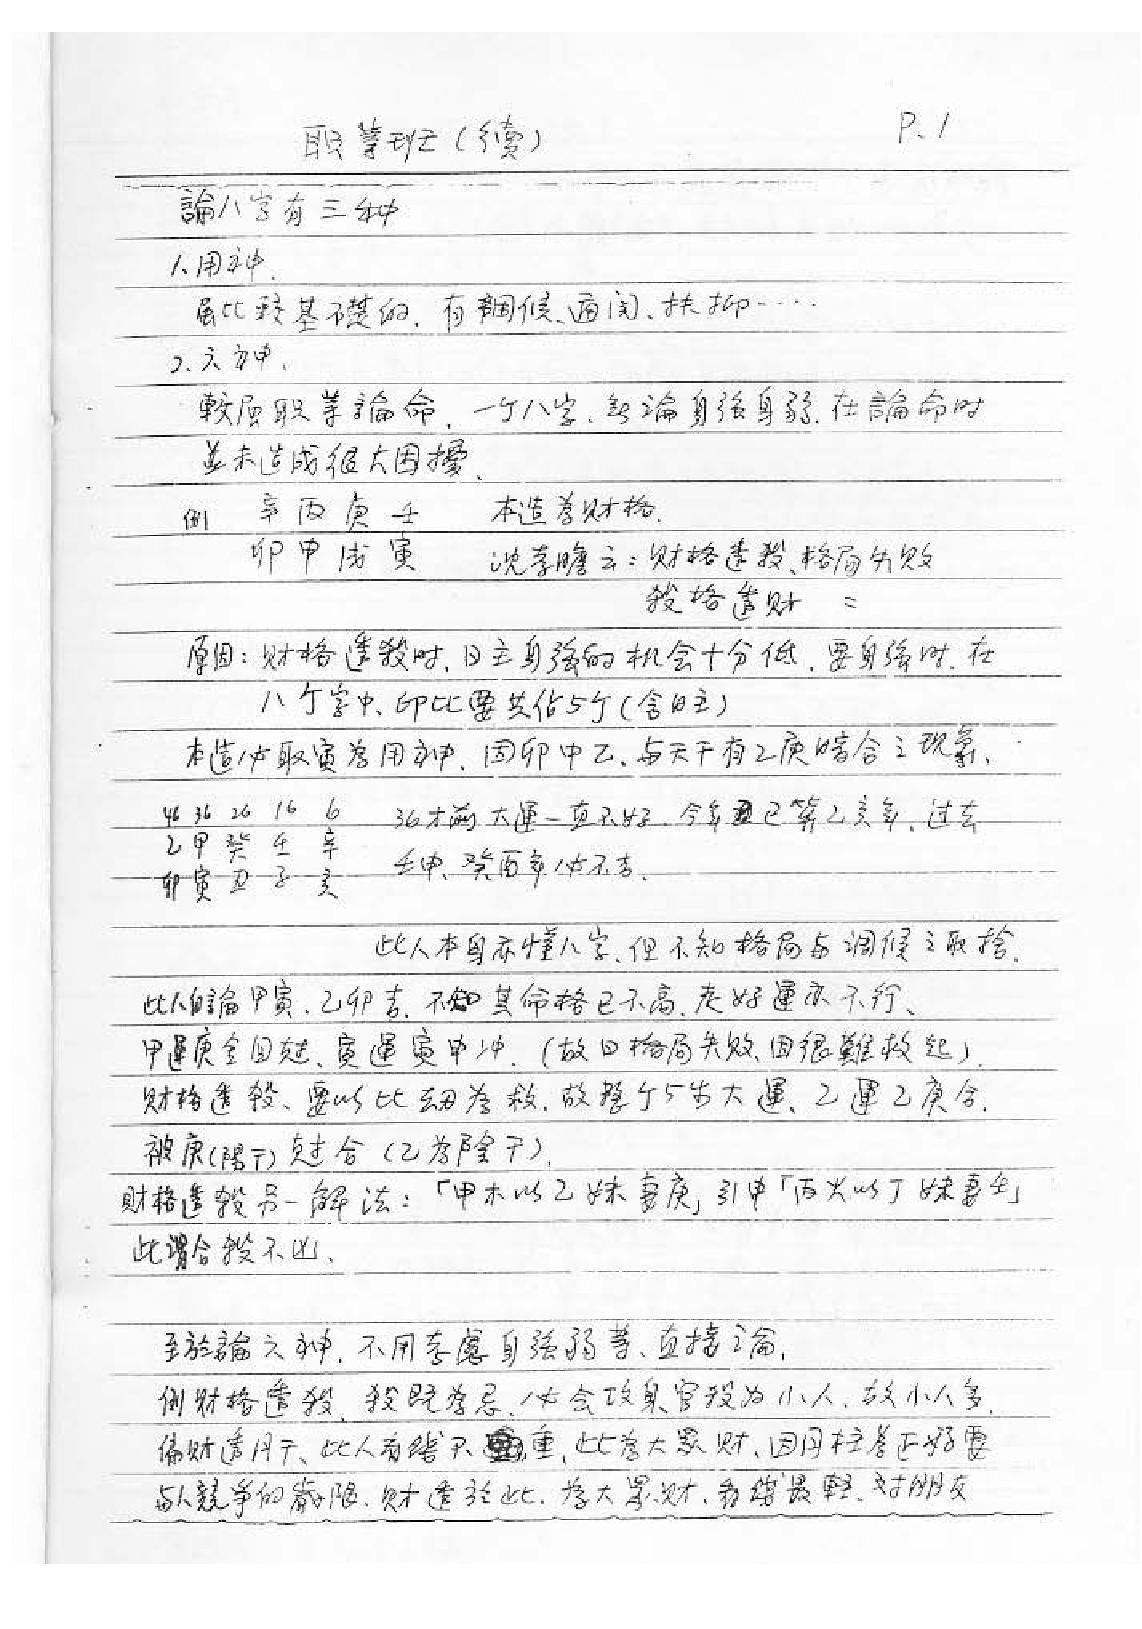 職等班(續)
P.1
論八字有三种
1.用神.
屬比較基礎的.有調候、通関、扶抑....
2.六神.
較屬職等論命.一个八字.無論身強身弱.在論命时
並未造成很大困擾.
例 辛丙庚壬 本造為财格.
卯申戌寅 沈孝瞻云:财格透殺、格局失敗
殺格透财 =
原因:财格透殺时.日主身強的机会十分低.要身強时.在
八个字中、印比要共佔5个(含日主)
本造必取寅為用神、因卯中乙、与天干有乙庚暗合之現象.
46 36 26 16 6 36才前大運一直不好.今年已算乙亥年、过去
乙甲癸壬辛
壬申、癸酉年必不吉.
卯寅丑子亥
此人本身亦懂八字.但不知格局与調候之取捨.
此人自論甲寅、乙卯吉.不知其命格已不高、走好運亦不行、
甲運庚金回尅、寅運寅申冲.(故曰格局失敗、因很難救起).
财格透殺、要以比劫為救.故整个5步大運、乙運乙庚合.
被庚(陽干)尅合(乙為陰干).
財格透殺另一解法:「甲木以乙妹妻庚」引申「丙火以丁妹妻壬」
此謂合殺不凶、
至於論六神.不用考慮身強弱等、直接論.
例财格透殺、殺既為忌.必会攻身官殺为小人.故小人多.
偏财透月干、此人看錢不重.此為大眾财、因月柱等正好要
与人競爭的歲限.财透於此.為大眾财.看錢最輕.对朋友